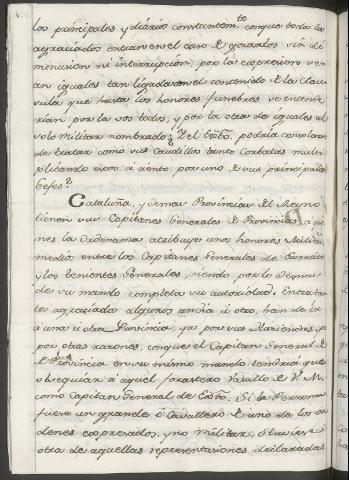 los principales y diarios constantem.te conque todos los
agraciados entran en el caso de gozarlos sin di
minucion ni interrupcion, por la expresion ve
an iguales tan ligada en el contenido de la Clau
sula que hasta los honores funebres se entende
rian por la vos todos, y por la otra de iguales al
solo militar nombrado? Y el Exto. podria complacer
de tratar como sus Caudillos tanto Corbatas multi
plicando exceso à ciento por uno de sus principales
Gefes?
Cataluña, y demas Provincias de el Reyno
tienen sus Capitanes Generales de Provincias à quie
nes la Ordenanza atribuye unos honores Militares
medios entre los Capitanes Generales de Exercito
y los tenientes Generales, siendo por lo demas
de su mando completa su autoridad. Entra tan
to agraciado algunos un dia ù otro, han de ir
à una ù otra Provincia, ya por sus Haciendas, ya
por otras razones, conque el Capitan General de
la Provincia en su mismo mando tendria que
obsequiar à aquel forastero Vasallo de V. M.
como Capitan General de Exto. Si la Persona
fuere un grande ò Cavallero de uno de los or
denes expresados, y no militar, ò tuviese
otra de aquellas representaciones declaradas